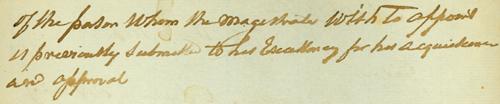 of the person whom the magistrate wish to appoint
is previously submitted to his Excellency for his acquiescence
and approval